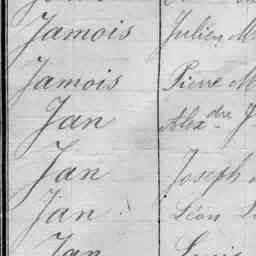 Jamois Julien M
Jamois Pierre M
Jan Alexdre J
Jan Joseph
Jan Léon L
Jan Louis